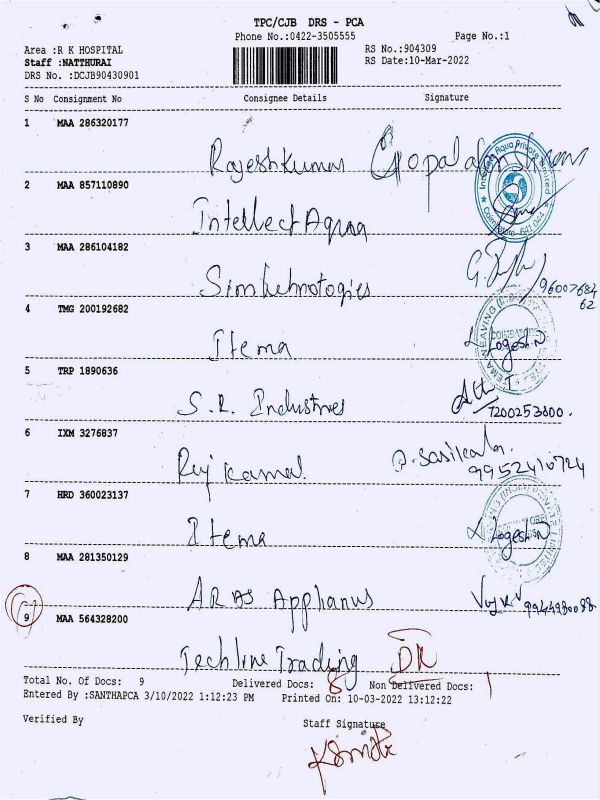 TPC/CJB DRS - PCA
Phone No.:0422-3505555 Page No.:1
Area :R K HOSPITAL RS No.:904309
Staff :NATTHURAI RS Date:10-Mar-2022
DRS No. :DCJB90430901
S No Consignment No Consignee Details Signature
1 MAA 286320177
Rajeshkumar Gopalakrishnan
2 MAA 857110890
Intellect Aqua
3 MAA 286104182
Sim tehnologies 9600768462
4 TMG 200192682
Itema Logesh
5 TRP 1890636
S.R. Industries 7200253800.
6 IXM 3276837
Raj kamal P. Sasikala 9952410724
7 HRD 360023137
Itema Logesh
8 MAA 281350129
ARAS 9944980088
9 MAA 564328200
Techline Trading
Total No. Of Docs: 9 Delivered Docs: 8 Non Delivered Docs: 1
Entered By :SANTHAPCA 3/10/2022 1:12:23 PM Printed On: 10-03-2022 13:12:22
Verified By Staff Signature